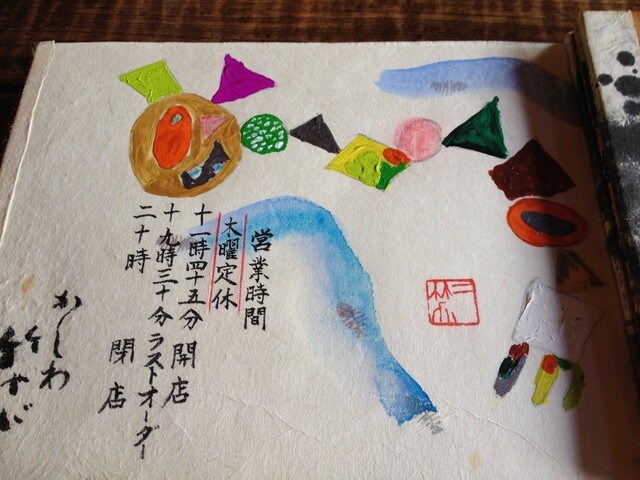 営業時間
木曜定休
十一時四十五分 開店
十九時三十分ラストオーダー
二十時 閉店
かしわ